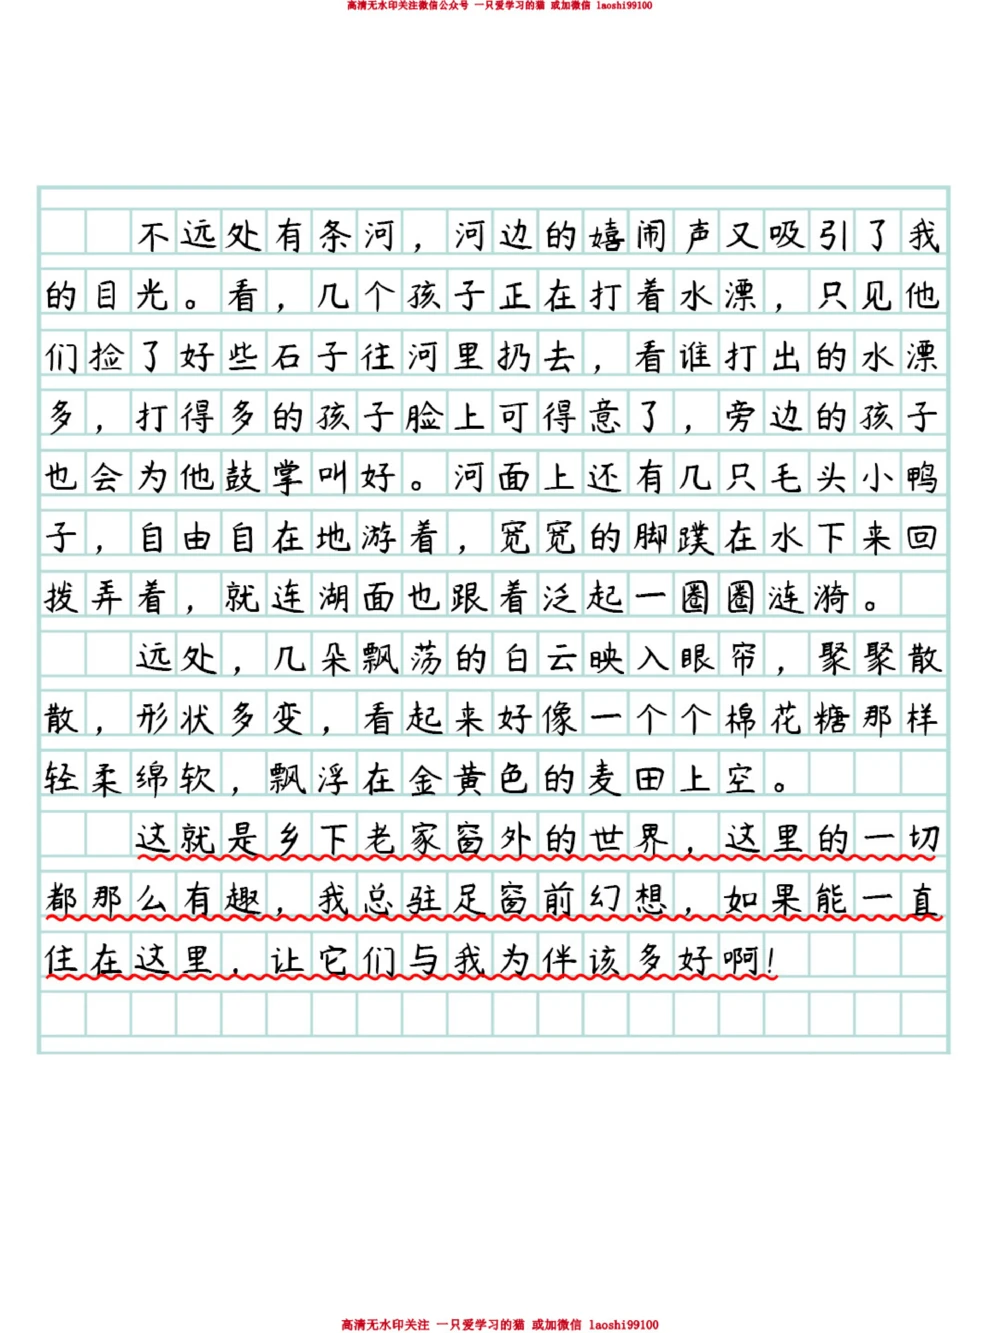 高清无水印关注微信公众号 一只爱学习的猫 或加微信 laoshi99100
不远处有条河，河边的嬉闹声又吸引了我
的目光。看，几个孩子正在打着水漂，只见他
们捡了好些石子往河里扔去，看谁打出的水漂
多，打得多的孩子脸上可得意了，旁边的孩子
也会为他鼓掌叫好。河面上还有几只毛头小鸭
子，自由自在地游着，宽宽的脚蹼在水下来回
拨弄着，就连湖面也跟着泛起一圈圈涟漪。
远处，几朵飘荡的白云映入眼帘，聚聚散
散，形状多变，看起来好像一个个棉花糖那样
轻柔绵软，飘浮在金黄色的麦田上空。
这就是乡下老家窗外的世界，这里的一切
都那么有趣，我总驻足窗前幻想，如果能一直
住在这里，让它们与我为伴该多好啊!
高清无水印关注 一只爱学习的猫 或加微信 laoshi99100